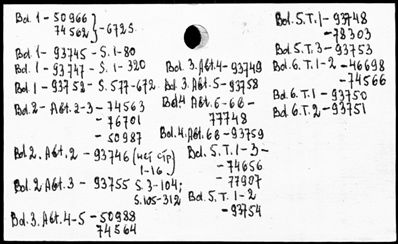 Bd. 1 - 50966
74562 } - 672 S.
Bd 1 - 93745 - S. 1-80
Bd 1 - 93747 - S. 1-320
Bd. 1 - 93752 - S. 577-672
Bd. 2 - Abt. 2-3 - 74563
- 76701
- 50987
Bd 2. Abt. 2 - 93746
1-16)
Bd. 2 Abt. 3 - 93755 S. 3-104;
S. 105-312
Bd. 3. Abt. 4-5 - 50988
74564
Bd. 3. Abt. 4 - 93749
Bd. 3. Abt. 5 - 93758
Bd 4 Abt. 6-6B -
77748
Bd. 4. Abt. 6B - 93759
Bd. 5. T. 1-3 -
- 74656
- 77907
Bd. 5. T. 1-2
- 93754
Bd. 5. T. 1 - 93748
- 78303
Bd. 5. T. 3 - 93753
Bd. 6. T. 1-2 - 46698
- 74566
Bd. 6. T. 1 - 93750
Bd 6. T. 2 - 93751